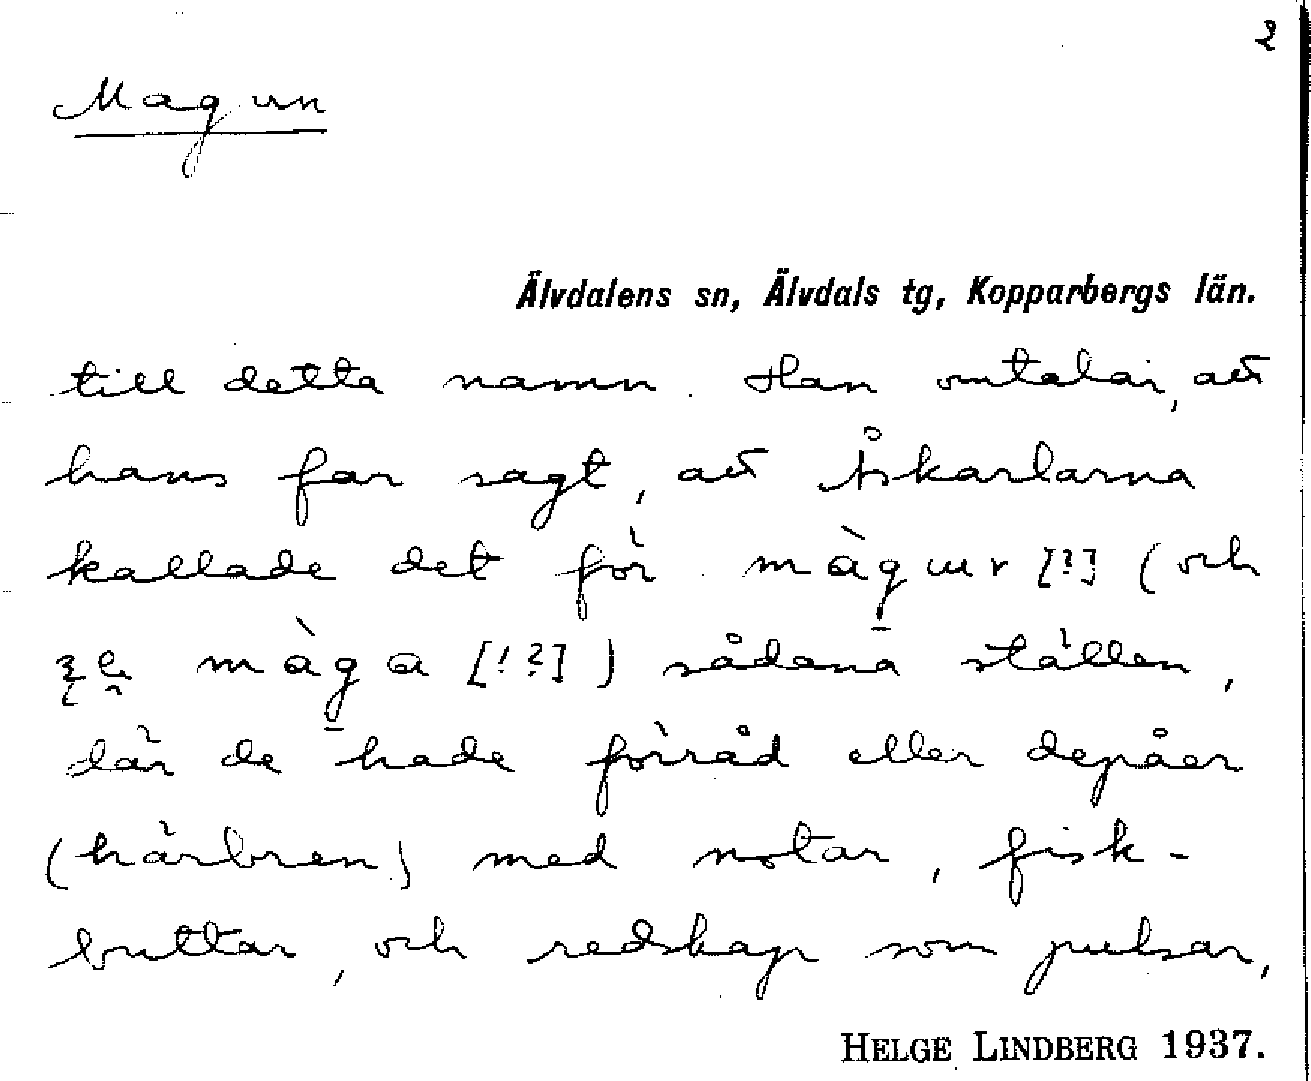 2
Magun
Älvdalens sn, Älvdals tg, Kopparbergs län.
till detta namn. Han omtalar, att
hans far sagt, att Åskarlarna
kallade det för màgɯr [?] (och
màga [!?]) sådana ställen,
där de hade förråd eller depåer
(härbren) med notar, fisk-
buttar, och redskap som pulsar,
HELGE LINDBERG 1937.